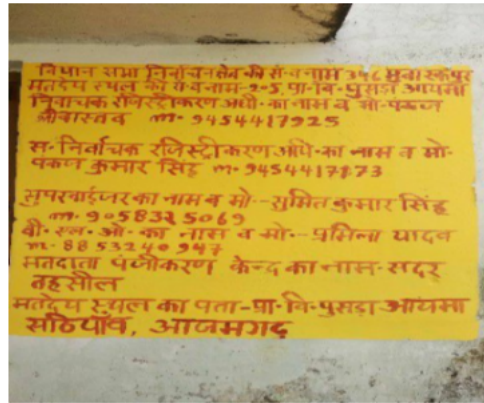 विधान सभा निर्वाचन क्षेत्र की सं॰व नाम 346 मुबारकपुर
मतदेय स्थल की सं व नाम-205 प्रा॰वि॰पुसड़ा आयमा
निर्वाचक रजिस्ट्रीकरण अधि॰का नाम व मो-पंकज
श्रीवास्तव m॰ 9454417925
स॰निर्वाचक रजिस्ट्रीकरण अधि॰का नाम व मो॰
पंकज कुमार सिंह m॰9454417173
सुपरवाईजर का नाम व मो॰-सुमित कुमार सिंह
m॰9058325069
बी॰एल॰ओ॰का नाम व मो॰-प्रमिला यादव
m॰8853240947
मतदाता पंजीकरण केन्द्र का नाम-सदर
तहसील
मतदेय स्थल का पता-प्रा॰वि॰पुसड़ा आयमा
सठियाँव, आजमगढ़